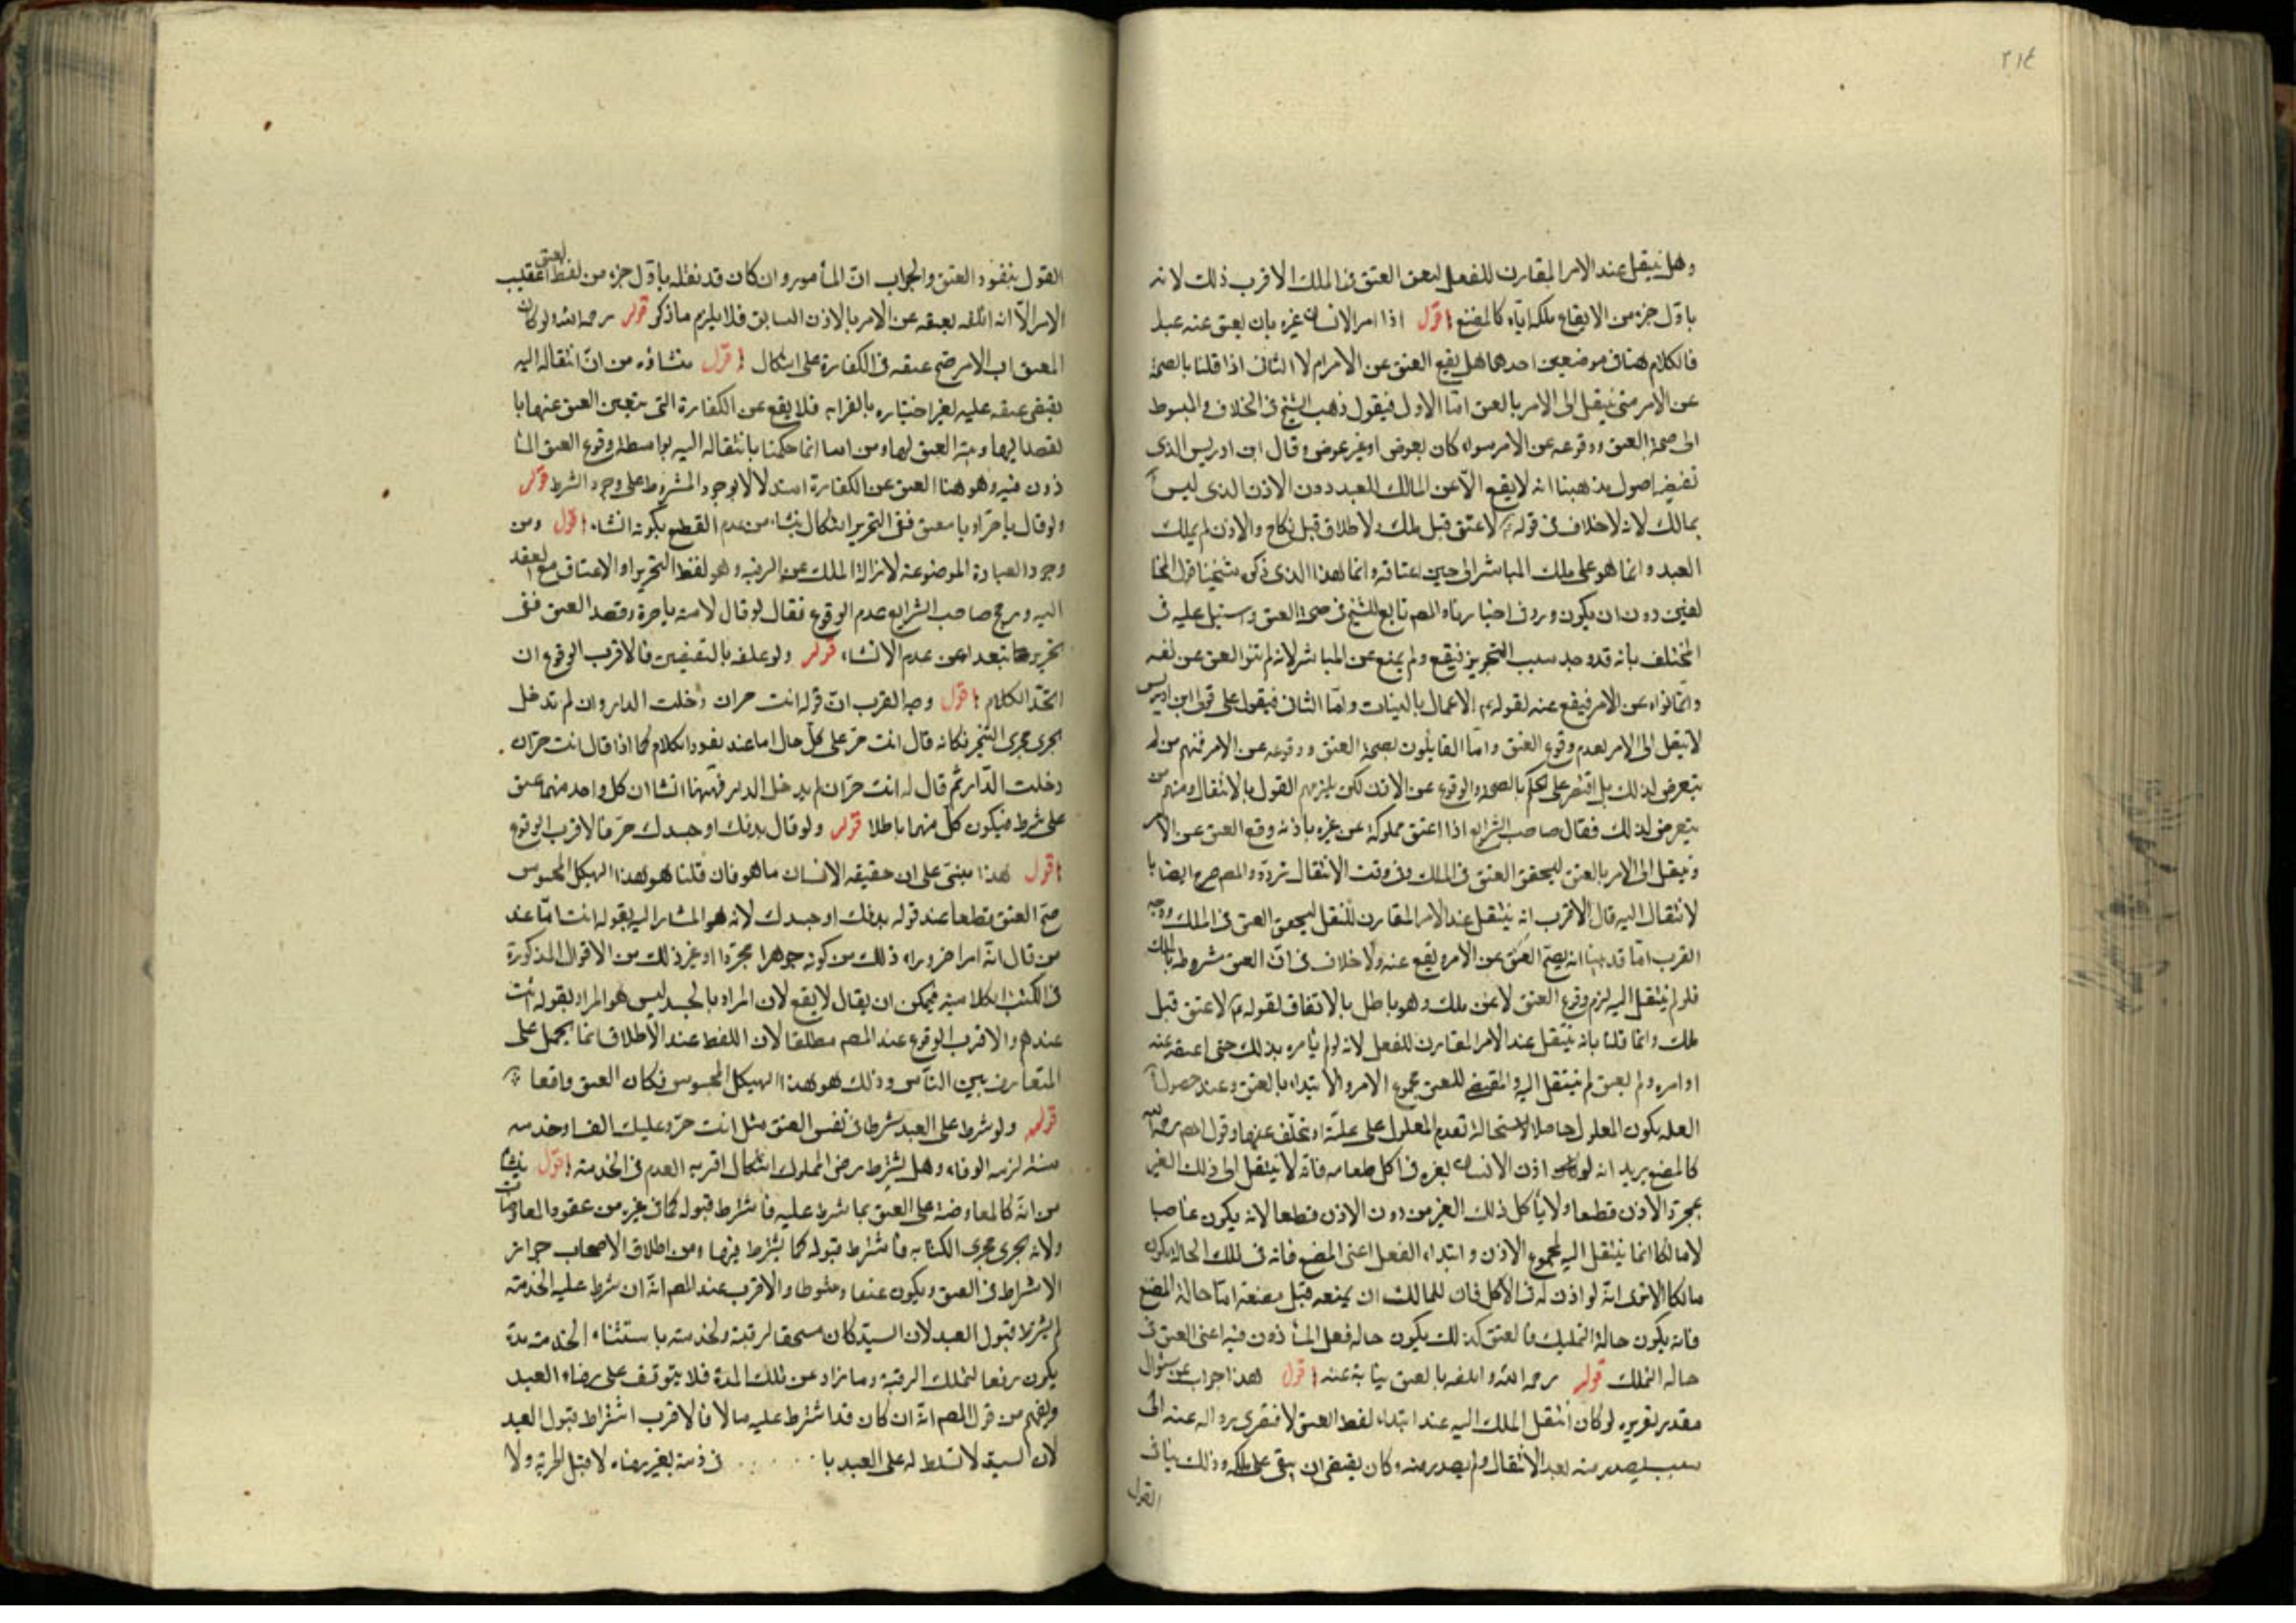 ٢١٤
وهل ينتقل عند الامر المقارن للفعل ليتحقق العتق في الملك الاقرب ذلك لانه
باول جزء من الايقاع ملكه اياه كالمضغ اقول اذا امر الانسان غيره بان يعتق عنه عبده
فالكلام هنا في موضعين احدهما هل يقع العتق عن الامر ام لا الثاني اذا قلنا بالصحة
عن الامر متى ينتقل الى الامر بالعتق اما الاول فيقول ذهب الشيخ في الخلاف والمبسوط
الى صحة العتق ووقوعه عن الامر سواء كان بعوض او غير عوض وقال ابن ادريس الذي
تقتضيه اصول مذهبنا انه لا يقع الا عن المالك للعبد دون الاذن الذي ليس
بمالك لانه لا خلاف في قوله ع لا عتق قبل ملك ولا طلاق قبل نكاح والاذن لم يملك
العبد وانما هو على ملك المباشر الى حين اعتاقه وانما هذا الذي ذكره شيخنا قول المخا
لفين دون ان يكون ورد في اخبارنا والمصم تابع للشيخ في صحة العتق واستدل عليه في
المختلف بانه قد وجد سبب التحرير فيقع ولم يقع عن المباشر لانه لم ينو العتق عن نفسه
وانما نواه عن الامر فيقع عنه لقوله ع الاعمال بالنيات واما الثاني فيقول على قول ابن ادريس
لا ينتقل الى الامر لعدم وقوع العتق واما القايلون بصحة العتق ووقوعه عن الامر فمنهم من لم
يتعرض لذلك بل اقتصر على الحكم بالصحة والوقوع عن الاذن لكن يلزمهم القول بالانتقال ومنهم من
يتعرض لذلك فقال صاحب الشرايع اذا اعتق مملوكه عن غيره باذنه وقع العتق عن الامر
وينتقل الى الامر بالعتق ليتحقق العتق في الملك وفي وقت الانتقال تردد والمصم صرح ايضا با
لانتقال اليه قال الاقرب انه ينتقل عند الامر المقارن للنقل ليتحقق العتق في الملك ووجه
القرب انا قد بينا انه يصح العتق عن الامر ويقع عنه ولا خلاف في ان العتق مشروط بالملك
فلو لم ينتقل اليه لزم وقوع العتق لا عن ملك وهو باطل بالاتفاق لقوله ع لا عتق قبل
ملك وانما قلنا بانه ينتقل عند الامر المقارن للفعل لانه لو لم يامره بذلك حتى اعتقه عنه
او امره ولم يعتق لم ينتقل اليه والمقتضي للعتق مجموع الامر والابتداء بالعتق وعند حصول
العله يكون المعلول حاصلا لاستحالة تقدم المعلول على علته او تخلف عنها وقول المصم رحمه الله
كالمضغ يريد انه لو اذن الانسان لغيره في اكل طعامه فانه لا ينتقل الى ذلك الغير
بمجرد الاذن قطعا ولا ياكل ذلك الغير من دون الاذن قطعا لانه يكون غاصبا
لا مالكا انما ينتقل اليه لمجموع الاذن وابتداء الفعل اعني المضغ فانه في تلك الحالة يكون
مالكا الا ترى انه لو اذن له في الاكل فان للمالك ان يمنعه قبل مضغه اما حالة المضغ
فانه يكون حالة التمليك فالعتق كذلك يكون حاله فعل الماذون فيه اعني العتق في
حاله التملك قوله رحمه الله واتلفه بالعتق نيابة عنه اقول هذا جواب عن سؤال
مقدر تقريره لو كان انتقل الملك اليه عند ابتداء لفظ العتق لافتقر زواله عنه الى
سبب يصدر منه بعد الانتقال ولم يصدر منه وكان يقتضي ان يبقى على ملكه وذلك ينافي
القول
القول بنفوذ العتق والجواب ان المامور وان كان قد نقله باول جزء من لفظ العتق عقيب
الامر الا انه اتلفه بعتقه عن الامر بالاذن السابق فلا يلزم ما ذكر قوله رحمه الله لو كان
المعتق اب الامر صح عتقه في الكفارة على اشكال اقول منشاؤه من ان انتقاله اليه
يقتضي عتقه عليه بغير اختياره بالقرابه فلا يقع عن الكفارة التي يتعين العتق عنها با
لقصد اليها ونية العتق لها ومن انا انما حكمنا بانتقاله اليه بواسطة وقوع العتق الما
ذون فيه وهو هنا العتق عن الكفارة استدلالا بوجود المشروط على وجود الشرط قوله
ولو قال يا حر او يا معتق ففي التحرير اشكال ينشا من عدم القطع بكونه انشاء اقول ومن
وجود العبارة الموضوعة لازالة الملك عن الرقبه وهو لفظ التحرير او الاعتاق مع القصد
اليه ورجح صاحب الشرايع عدم الوقوع فقال لو قال لامته يا حرة وقصد العتق ففي
تحريرها تبعد عن عدم الانشاء قوله ولو علقه بالنقيضين فالاقرب الوقوع ان
اتحد الكلام اقول وجه القرب ان قوله انت حر ان دخلت الدار وان لم تدخل
يجري مجرى التنجيز فكانه قال انت حر على كل حال اما عند تعدد الكلام كما اذا قال انت حر ان
دخلت الدار ثم قال له انت حر ان لم تدخل الدار فههنا انشاان كل واحد منهما عتق
على شرط فيكون كل منهما باطلا قوله ولو قال بدنك او جسدك حر فالاقرب الوقوع
اقول هذا مبني على ان حقيقه الانسان ما هو فان قلنا هو هذا الهيكل المحسوس
صح العتق قطعا عند قوله بدنك او جسدك لانه هو المشار اليه بقوله انت اما عند
من قال انه امر اخر وراء ذلك من كونه جوهرا مجردا او غير ذلك من الاقوال المذكورة
في الكتب الكلاميه فيمكن ان يقال لا يقع لان المراد بالجسد ليس هو المراد بقوله انت
عندهم والاقرب الوقوع عند المصم مطلقا لان اللفظ عند الاطلاق انما يحمل على
المتعارف بين الناس وذلك هو هذا الهيكل المحسوس فكان العتق واقعا
قوله ولو شرط على العبد شرطا في نفس العتق مثل انت حر وعليك الف او خدمه
سنة لزمه الوفاء وهل يشترط رضى المملوك اشكال اقربه العدم في الخدمة اقول ينشا
من انه كالمعاوضة على العتق بما شرط عليه فاشترط قبوله كما في غيره من عقود المعاوضات
ولانه يجري مجرى الكتابه فاشترط قبوله كما يشترط فيها ومن اطلاق الاصحاب جواز
الاشتراط في العتق ويكون عتقا ومشروطا والاقرب عند المصم انه ان شرط عليه الخدمة
لم يشترط قبول العبد لان السيد كان مستحقا لرقبته ولخدمته باستثناء الخدمة مدة
يكون رفعا لتملك الرقبة وما زاد عن تلك المدة فلا يتوقف على رضاء العبد
ويفهم من قول المصم انه ان كان قد اشترط عليه مالا فالاقرب اشتراط قبول العبد
لان السيد لا تسلط له على العبد با ..... في ذمته بغير رضاه لا قبل الحرية ولا